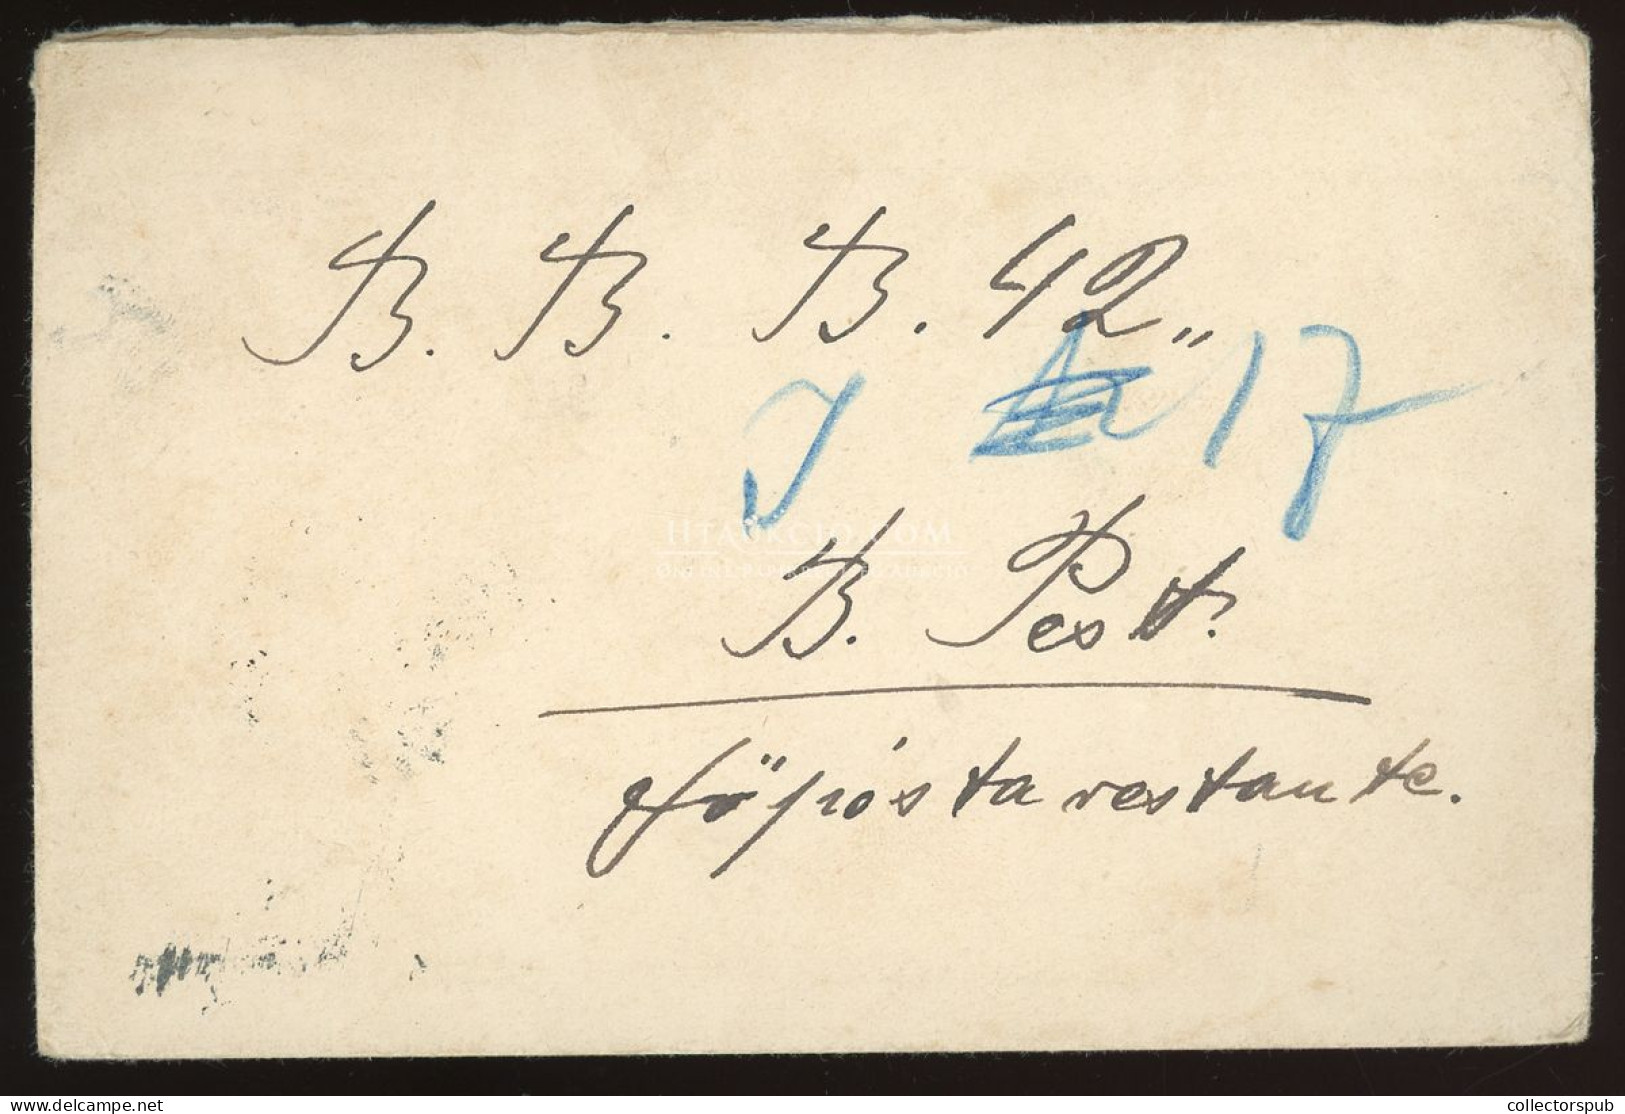 B. B. B. 42„
J 17
HTAUKCIO.COM
B. Pest.
főpósta restante.
www.delcampe.net
collectorspub